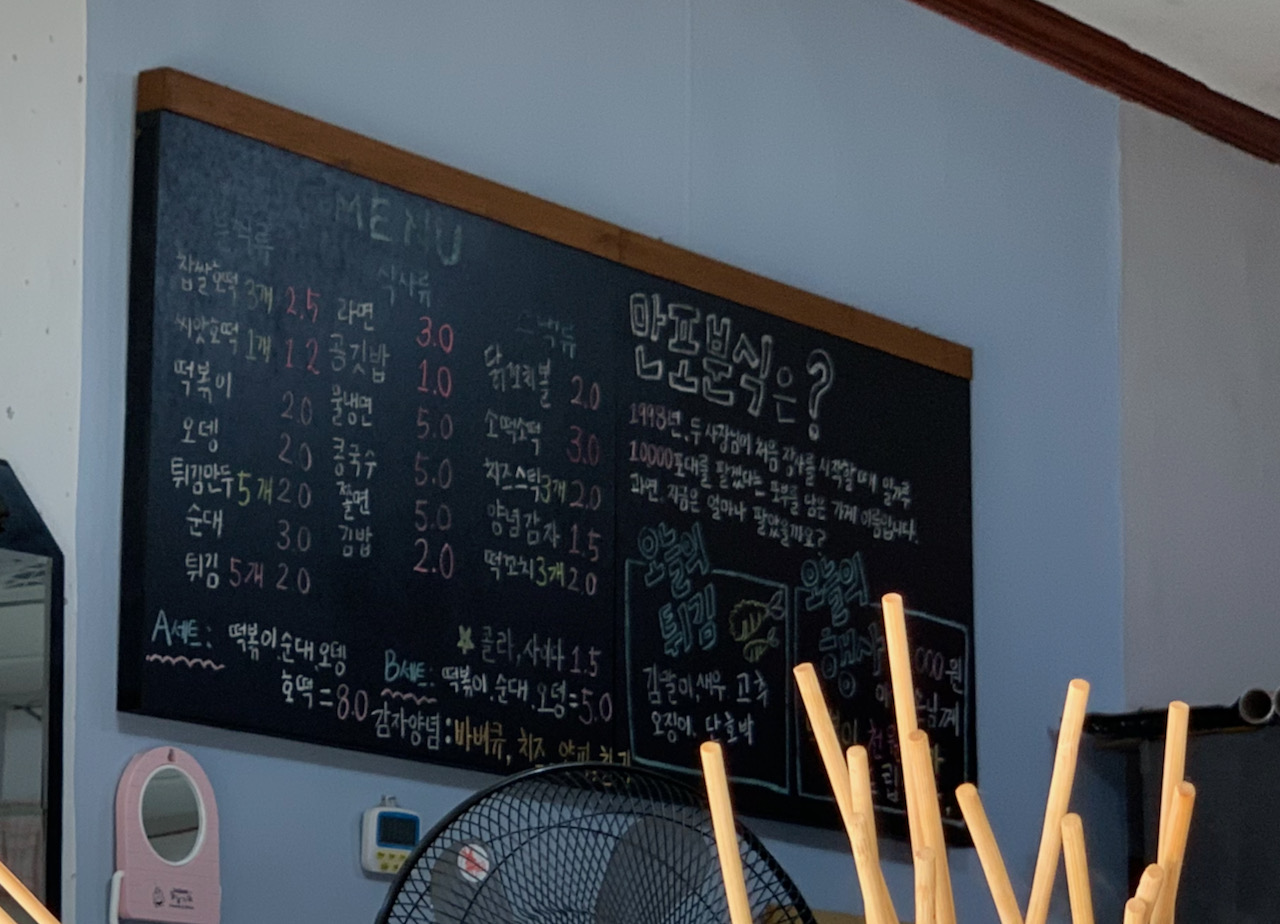 MENU
분식류
찹쌀호떡 3개 2.5
씨앗호떡 1개 1.2
떡볶이 2.0
오뎅 2.0
튀김만두 5개 2.0
순대 3.0
튀김 5개 2.0
식사류
라면 3.0
공깃밥 1.0
물냉면 5.0
콩국수 5.0
쫄면 5.0
김밥 2.0
스낵류
2.0
소떡소떡 3.0
치즈스틱 3개 2.0
양념감자 1.5
떡꼬치 3개 2.0
콜라, 사이다 1.5
A세트: 떡볶이.순대.오뎅
호떡 = 8.0
B세트: 떡볶이.순대.오뎅=5.0
감자양념: 바베큐, 치즈
만포분식은?
1998년, 두 사장님이 처음 장사를 시작할 때에 밀가루
10000포대를 팔겠다는 포부를 담은 가게 이름입니다.
과연, 지금은 얼마나 팔았을까요?
오늘의
튀김
김말이, 새우 고추
오징어, 단호박
오늘의
행사
000원